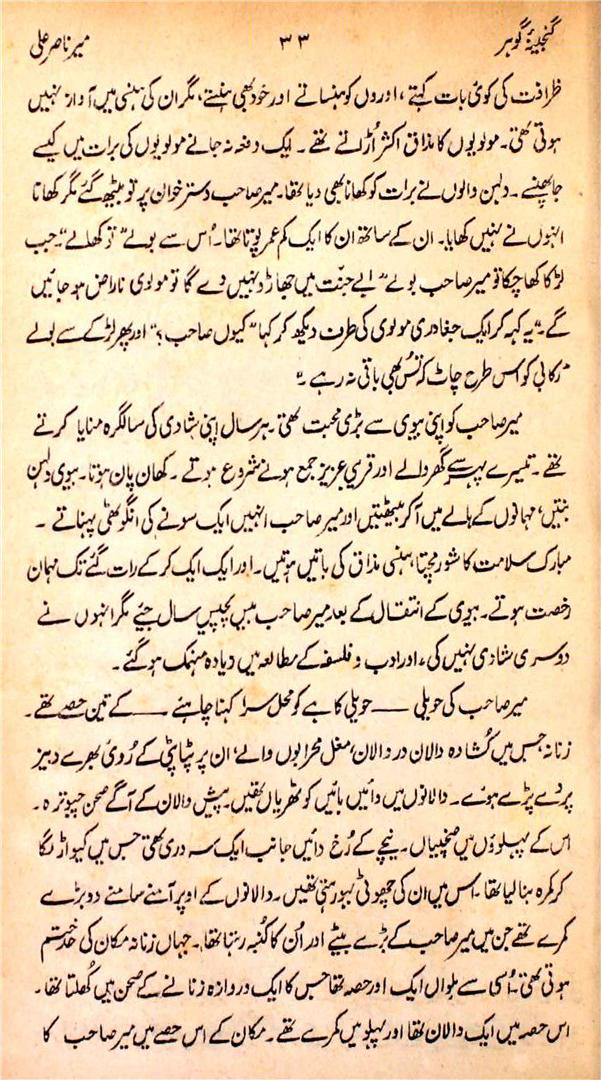 گنجینۂ گوہر ۳۳ میر ناصر علی
ظرافت کی کوئی بات کہتے، اوروں کو ہنساتے اور خود بھی ہنستے، مگر ان کی ہنسی میں آواز نہیں
ہوتی تھی۔ مولویوں کا مذاق اکثر اُڑاتے تھے۔ ایک دفعہ نہ جانے مولویوں کی برات میں کیسے
جا پھنسے۔ دلہن والوں نے برات کو کھانا بھی دیا تھا۔ میر صاحب دستر خوان پر تو بیٹھ گئے مگر کھانا
انہوں نے نہیں کھایا۔ ان کے ساتھ ان کا ایک کم عمر پوتا تھا۔ اُس سے بولے "تو کھالے"۔ جب
لڑکا کھا چکا تو میر صاحب بولے "ابے جنّت میں جھاڑو نہیں دے گا تو مولوی ناراض ہو جائیں
گے۔" یہ کہہ کر ایک جغادری مولوی کی طرف دیکھ کر کہا "کیوں صاحب؟" اور پھر لڑکے سے بولے
"رکابی کو اس طرح چاٹ کہ نُس بھی باقی نہ رہے۔"
میر صاحب کو اپنی بیوی سے بڑی محبت تھی۔ ہر سال اپنی شادی کی سالگرہ منایا کرتے
تھے۔ تیسرے پہر سے گھر والے اور قریبی عزیز جمع ہونے شروع ہوتے۔ کھان پان ہوتا۔ بیوی دلہن
بنتیں، مہمانوں کے ہالے میں آکر بیٹھتیں اور میر صاحب انہیں ایک سونے کی انگوٹھی پہناتے۔
مبارک سلامت کا شور مچتا، ہنسی مذاق کی باتیں ہوتیں۔ اور ایک ایک کرکے رات گئے تک مہمان
رخصت ہوتے۔ بیوی کے انتقال کے بعد میر صاحب بیس پچیس سال جئے مگر انہوں نے
دوسری شادی نہیں کی، اور ادب و فلسفہ کے مطالعہ میں زیادہ منہمک ہو گئے۔
میر صاحب کی حویلی —— حویلی کا ہے کو محل سرا کہنا چاہئے —— کے تین حصے تھے۔
زنانہ جس میں کُشادہ دالان در دالان، مغل محرابوں والے، ان پر پٹاپٹی کے رُوئی بھرے دبیز
پردے پڑے ہوئے۔ دالانوں میں دائیں بائیں کوٹھریاں تھیں۔ پیش دالان کے آگے صحن چبوترہ۔
اس کے پہلوؤں میں صحنچیاں۔ نیچے کے رُخ دائیں جانب ایک سہ دری تھی جس میں کیواڑ لگا
کر کمرہ بنا لیا تھا۔ اس میں ان کی چھوٹی بہو رہتی تھیں۔ دالانوں کے اوپر آمنے سامنے دو بڑے
کمرے تھے جن میں میر صاحب کے بڑے بیٹے اور اُن کا کُنبہ رہتا تھا۔ جہاں زنانہ مکان کی حد ختم
ہوتی تھی۔ اُسی سے ملواں ایک اور حصہ تھا جس کا ایک دروازہ زنانے کے صحن میں کُھلتا تھا۔
اس حصہ میں ایک دالان تھا اور پہلو میں کمرے تھے۔ مکان کے اس حصے میں میر صاحب کا